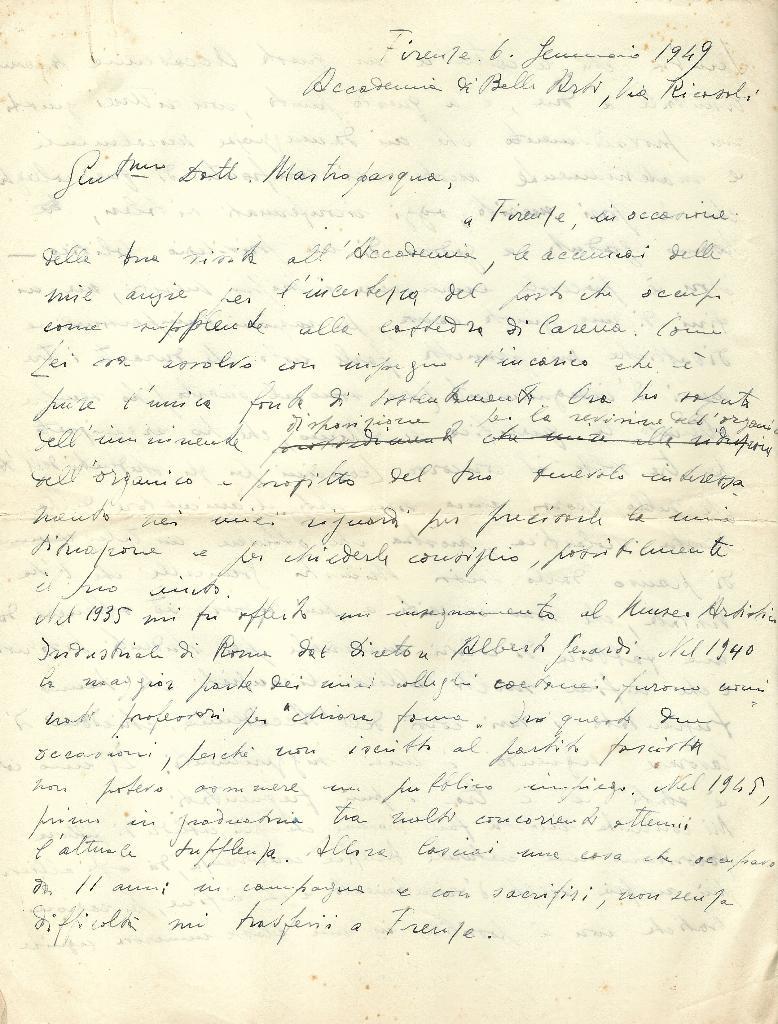 Firenze. 6. Gennaio 1949
Accademia di Belle Arti, Via Ricasoli
Gentmo Dott. Mastropasqua,
a Firenze, in occasione
della sua visita all'Accademia, le accennai delle
mie ansie per l'incertezza del posto che occupo
come supplente alla cattedra di Carena. Come
Lei sa assolvo con impegno l'incarico che è
pure l'unica fonte di sostentamento. Ora ho saputo
disposizione per la revisione dell'organico
dell'imminente provvedimento che mira alla riduzione
dell'organico e profitto del Suo benevolo interessa-
mento nei miei riguardi per precisarle la mia
situazione e per chiederle consiglio, possibilmente
il Suo aiuto.
Nel 1935 mi fu offerto un insegnamento al Museo Artistico
Industriale di Roma dal Direttore Alberto Gerardi. Nel 1940
la maggior parte dei miei colleghi coetanei furono nomi
nati professori per "chiara fama". In queste due
occasioni, perché non iscritto al partito fascista
non potevo assumere un pubblico impiego. Nel 1945,
primo in graduatoria tra molti concorrenti ottenni
l'attuale supplenza. Allora lasciai una casa che occupavo
da 11 anni in campagna e con sacrifizi, non senza
difficoltà mi trasferii a Firenze.